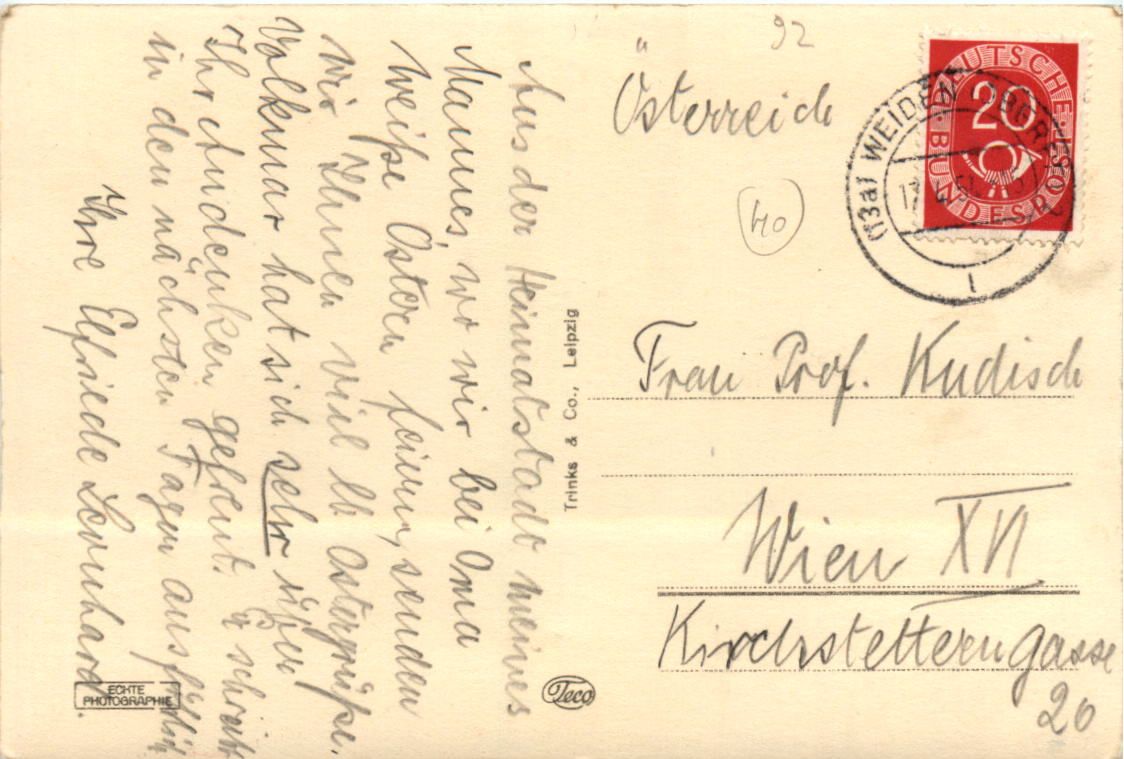 Aus der Heimatstadt meines
Mannes, wo wir bei Oma
weiße Ostern feiern, senden
wir Ihnen viel lb Ostergrüße.
Volkmar hat sich sehr über
Ihr Andenken gefreut. Er schreibt
in den nächsten Tagen ausführlich
Ihre Elfriede Leonhardt.
ECHTE
PHOTOGRAPHIE
Trinks & Co., Leipzig
Teco
92
Österreich
40
DEUTSCHE
BUNDESPOST
20
(13a) WEIDEN
Frau Prof. Kudisch
Wien XVI
Kirchstetterngasse
20